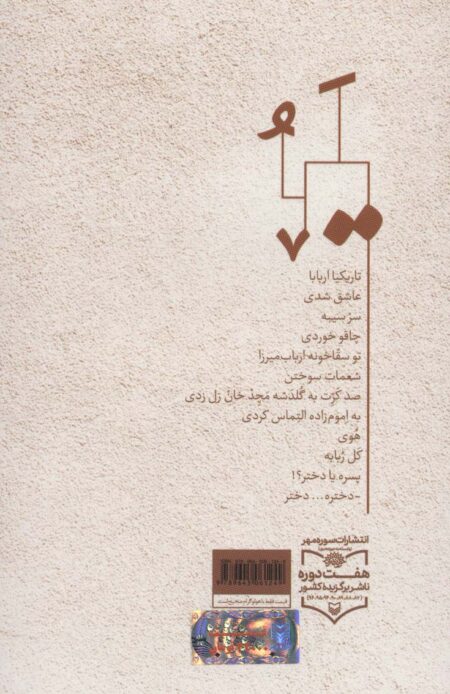 تاریکیا اربابا
عاشق شدی
سر سیبه
چاقو خوردی
تو سقاخونه ارباب‌میرزا
شمعات سوختن
صد کَرَت به گُلدَسّه مَچِدْ خانْ زل زدی
به امومزاده التماس کردی
هُوی
کَل رُبابه
پسره یا دختر؟!
-دختره... دختر
انتشارات سوره مهر
هفت دوره
ناشر برگزیده کشور